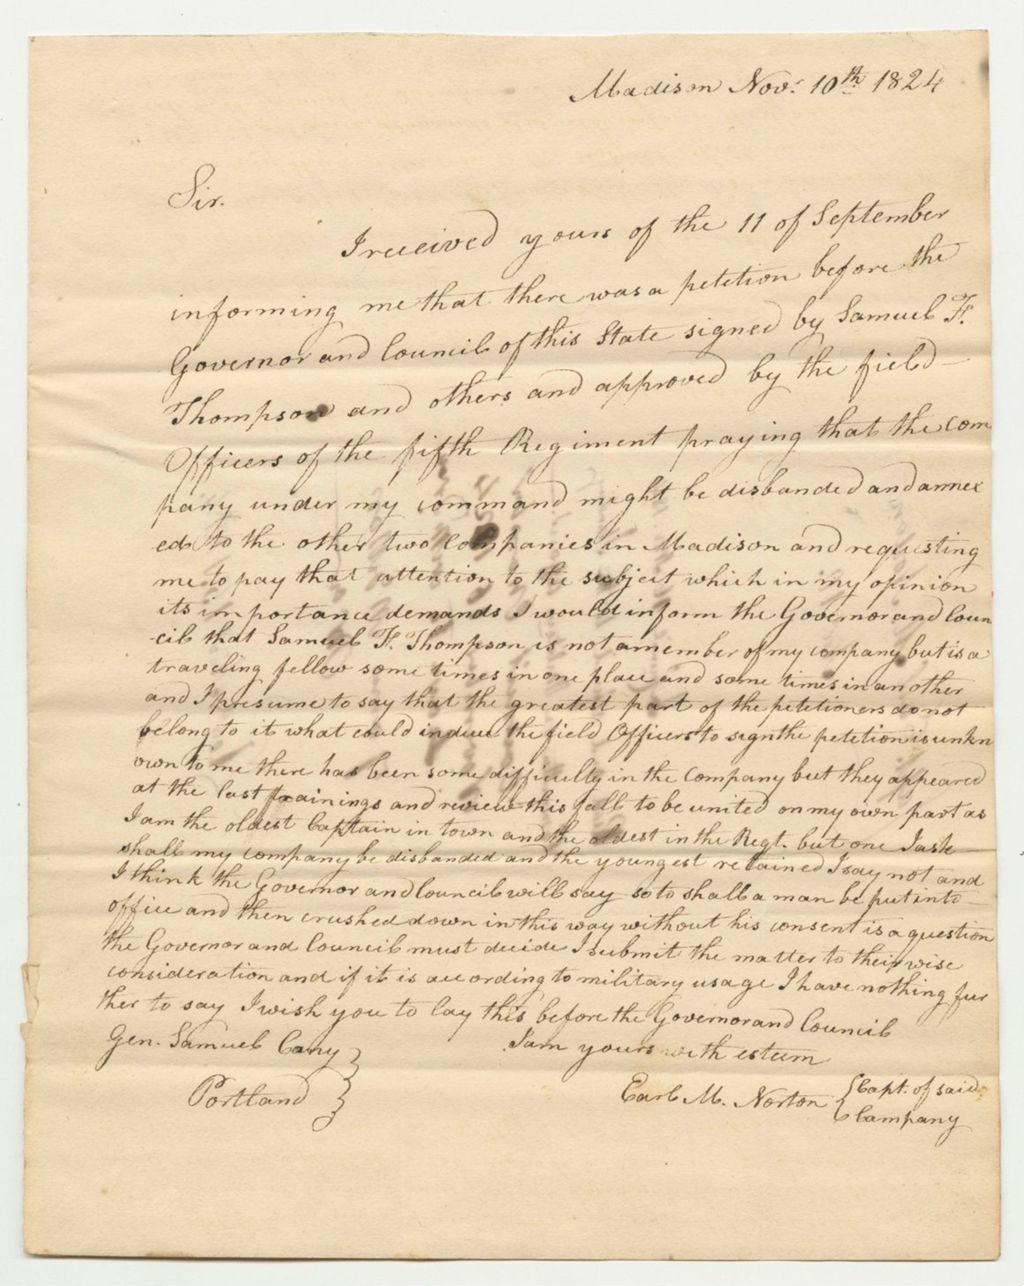 Madison Nov. 10th 1824
Sir.
I received yours of the 11 of September
informing me that there was a petition before the
Governor and Council of this State signed by Samuel F.
Thompson and others and approved by the field
Officers of the fifth Regiment praying that the com
pany under my command might be disbanded and annex
ed to the other two companies in Madison and requesting
me to pay that attention to the subject which in my opinion
its importance demands I would inform the Governor and Coun
cil that Samuel F. Thompson is not a member of my company but is a
traveling fellow some times in one place and some times in another
and I presume to say that the greatest part of the petitioners do not
belong to it what could induce the field Officers to sign the petition is unkn
own to me there has been some difficulty in the Company but they appeared
at the last trainings and review this fall to be united on my own part as
I am the oldest Captain in town and the oldest in the Regt. but one I ask
shall my company be disbanded and the youngest retained I say not and
I think the Governor and Council will say so to shall a man be put into
office and then crushed down in this way without his consent is a question
the Governor and Council must decide I submit the matter to their wise
consideration and if it is according to military usage I have nothing fur
ther to say I wish you to lay this before the Governor and Council
Gen. Samuel Cony } I am yours with esteem
Portland } Earl M. Norton { Capt. of said
Company